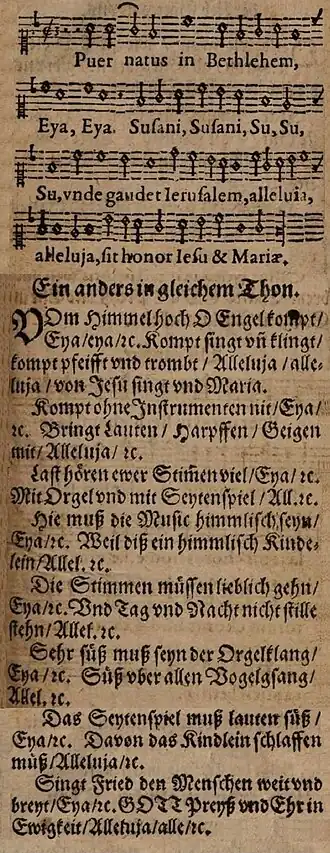 Puer natus in Bethlehem,
Eya, Eya. Susani, Susani, Su, Su,
Su, vnde gaudet Ierusalem, alleluia,
alleluja, sit honor Iesu & Mariæ.
Ein anders in gleichem Thon.
VOm Himmel hoch O Engel kompt/
Eya/eya/ꝛc. Kompt singt vn̄ klingt/
kompt pfeifft vnd trombt / Alleluja / alle-
luja / von Jesu singt vnd Maria.
Kompt ohne Instrumenten nit/Eya/
ꝛc. Bringt Lauten / Harpffen / Geigen
mit/Alleluja / ꝛc.
Last hören ewer Stim̄en viel/Eya/ꝛc.
Mit Orgel vnd mit Seytenspiel / All.ꝛc.
Hie muß die Music himmlisch seyn/
Eya/ꝛc. Weil diß ein himmlisch Kinde-
lein/Allel.ꝛc.
Die Stimmen müssen lieblich gehn/
Eya/ꝛc. Vnd Tag vnd Nacht nicht stille
stehn/Allel.ꝛc.
Sehr süß muß seyn der Orgelklang/
Eya/ꝛc. Süß vber allen Vogelgsang/
Allel.ꝛc.
Das Seytenspiel muß lauten süß/
Eya/ꝛc. Davon das Kindlein schlaffen
müß/Alleluja/ꝛc.
Singt Fried den Menschen weit vnd
breyt/Eya/ꝛc. GOTT Preyß vnd Ehr in
Ewigkeit/Alleluja/alle/ꝛc.